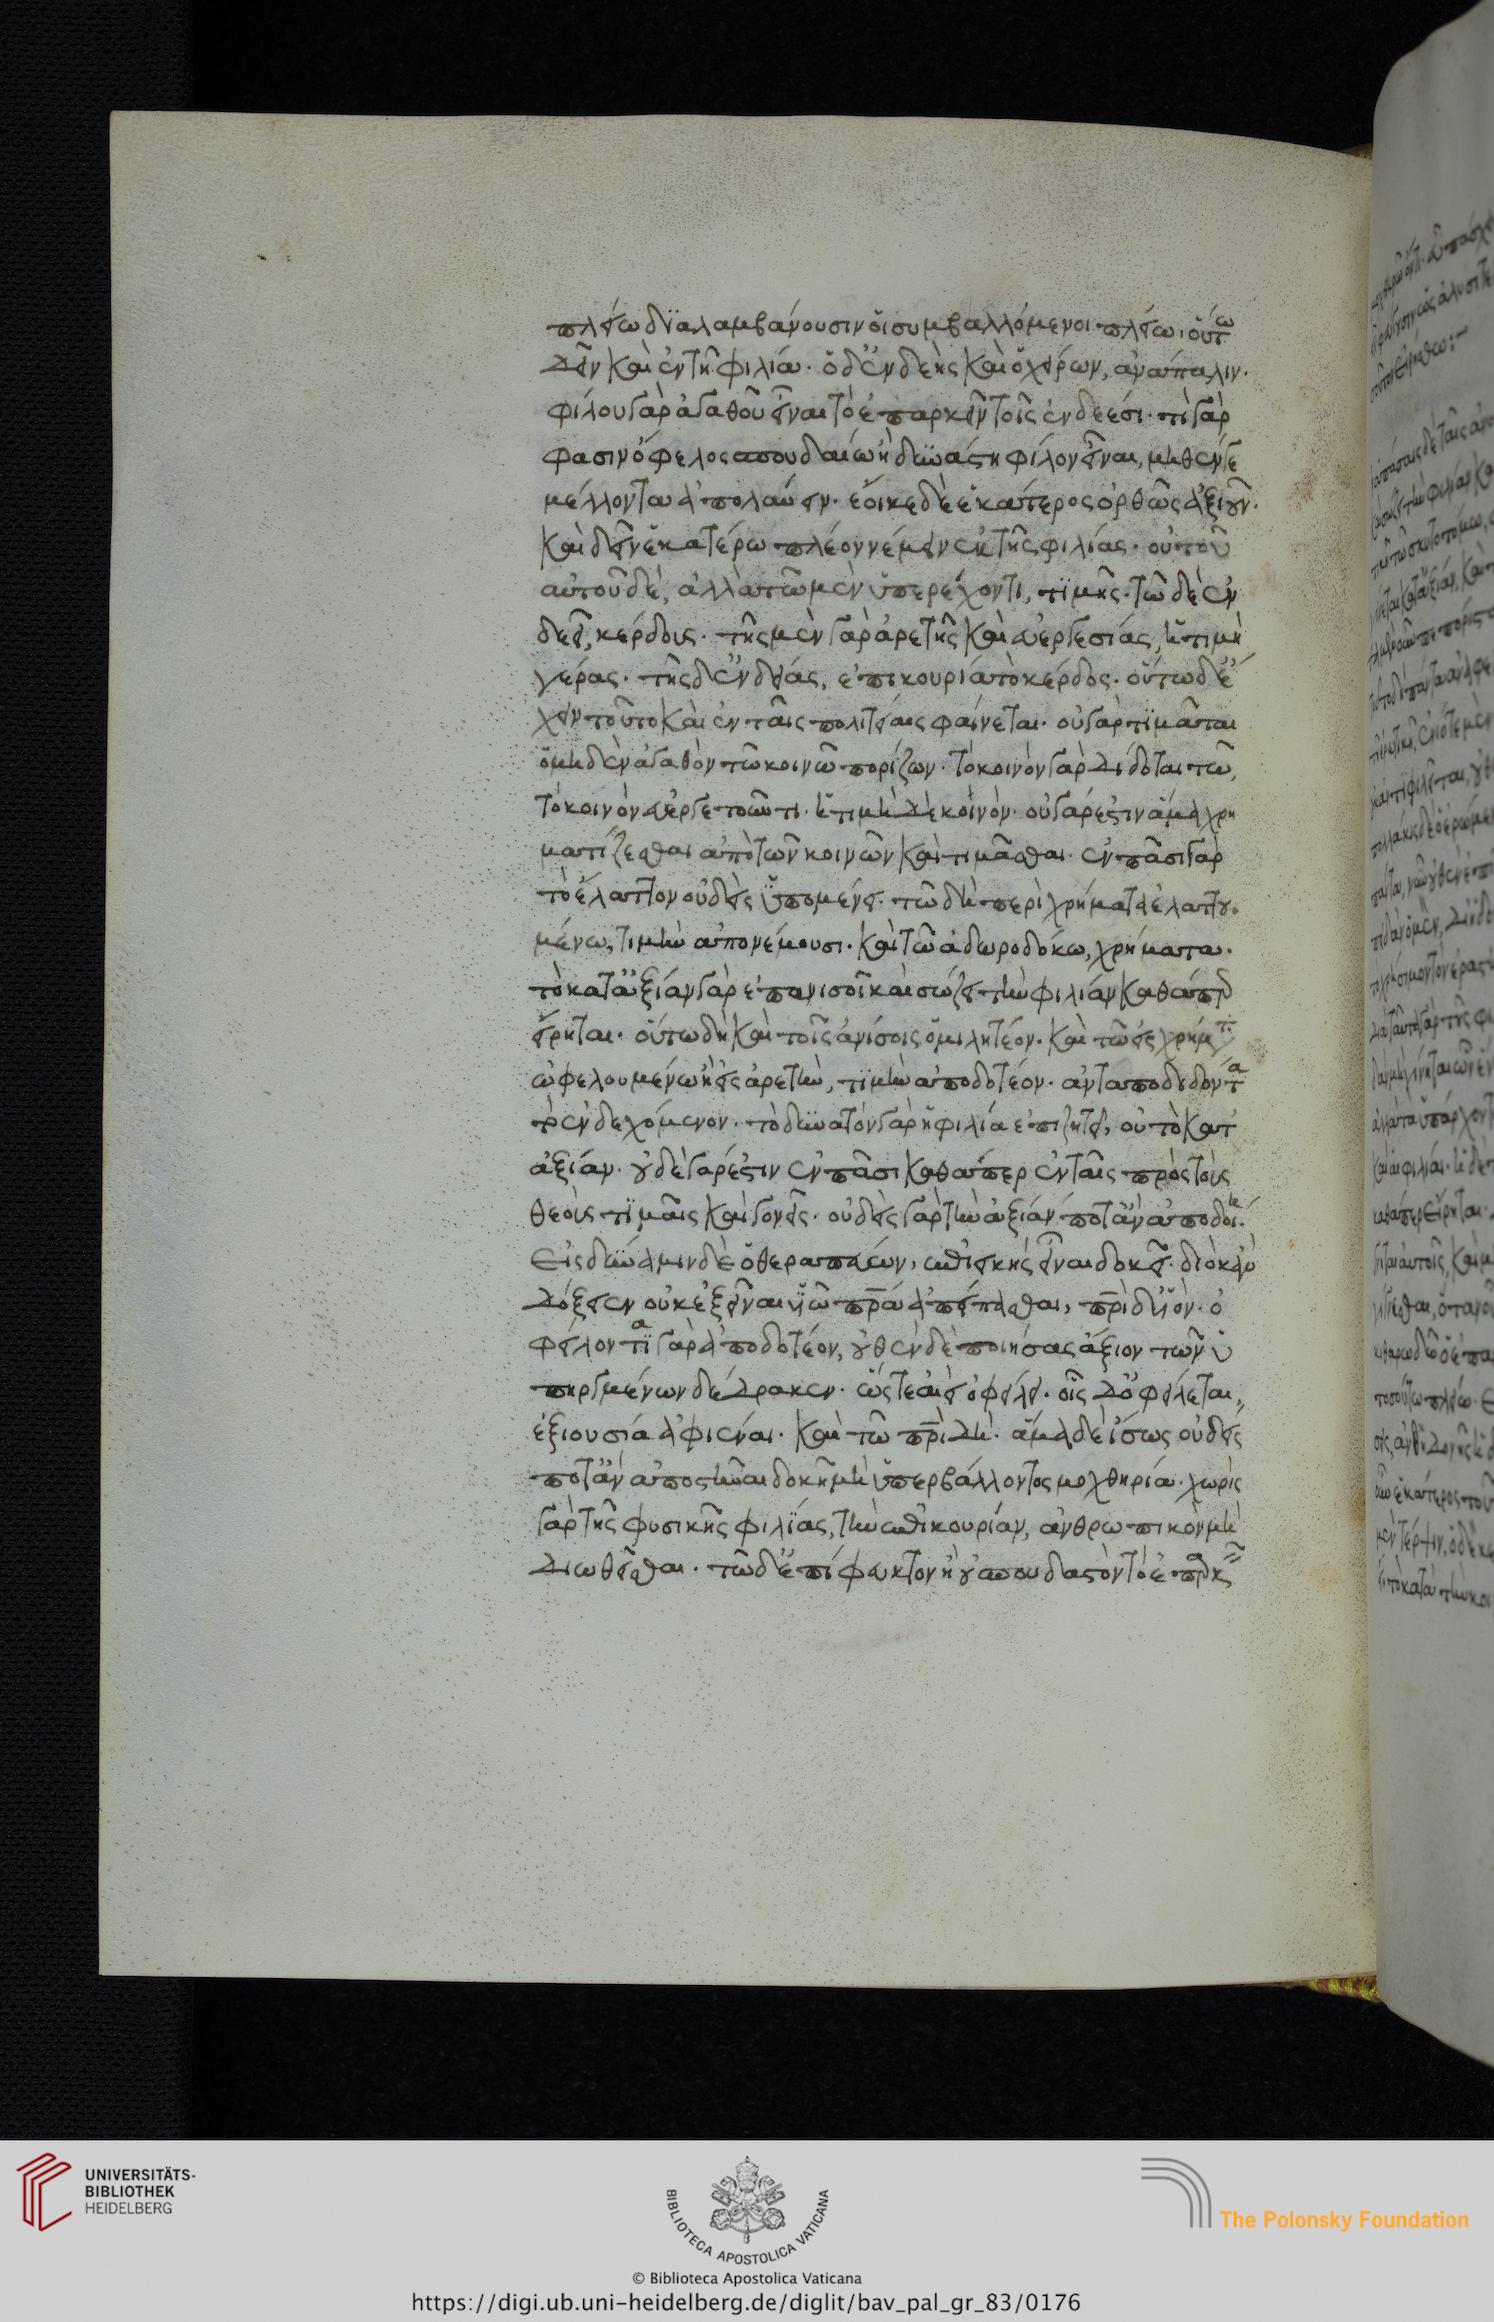 πλείω διαλαμβάνουσιν οἱ συμβαλλόμενοι πλείω· οὕτω
δεῖν καὶ ἐν τῆ φιλία. ὁ δ' ἐνδεὴς καὶ ὁ χείρων, ἀνάπαλιν.
φίλου γὰρ ἀγαθοῦ εἶναι τὸ ἐπαρκεῖν τοῖς ἐνδεέσι. τί γὰρ
φασιν ὄφελος σπουδαίω ἢ δυνάστη φίλον εἶναι, μηθέν γε
μέλλοντα ἀπολαύειν. ἔοικε δὲ ἑκάτερος ὀρθῶς ἀξιοῦν.
καὶ δεῖν ἑκατέρω πλέον νέμειν ἐκ τῆς φιλίας. οὐ τοῦ
αὐτοῦ δὲ, ἀλλὰ τῶ μὲν ὑπερέχοντι, τιμῆς. τῶ δὲ ἐν
δεεῖ, κέρδους. τῆς μὲν γὰρ ἀρετῆς καὶ εὐεργεσίας, ἡ τιμὴ
γέρας. τῆς δ' ἐνδείας, ἐπικουρία τὸ κέρδος. οὕτω δ' ἔ
χειν τοῦτο καὶ ἐν ταῖς πολιτείαις φαίνεται. οὐ γὰρ τιμᾶται
ὁ μηδὲν ἀγαθὸν τῶ κοινῶ πορίζων. τὸ κοινὸν γὰρ δίδοται τῶ,
τὸ κοινὸν εὐεργετοῦντι. ἡ τιμὴ δὲ κοινόν. οὐ γάρ ἐστιν ἅμα χρη
ματίζεσθαι ἀπὸ τῶν κοινῶν καὶ τιμᾶσθαι. ἐν πᾶσι γὰρ
τὸ ἔλαττον οὐδεὶς ὑπομένει. τῶ δὴ περὶ χρήματα ἐλαττου
μένω, τιμὴν ἀπονέμουσι. καὶ τῶ ἀδωροδόκω, χρήματα.
τὸ κατ' ἀξίαν γὰρ ἐπανισοῖ καὶ σώζει τὴν φιλίαν καθάπερ
εἴρηται. οὕτω δὴ καὶ τοῖς ἀνίσοις ὁμιλητέον. καὶ τῶ εἰς χρήματ
ὠφελουμένω ἢ εἰς ἀρετὴν, τιμὴν ἀποδοτέον. ἀνταποδιδόντα
τὸ ἐνδεχόμενον. τὸ δυνατὸν γὰρ ἡ φιλία ἐπιζητεῖ, οὐ τὸ κατ'
ἀξίαν. οὐδὲ γάρ ἐστιν ἐν πᾶσι καθάπερ ἐν ταῖς πρὸς τοὺς
θεοὺς τιμαῖς καὶ γονεῖς. οὐδεὶς γὰρ τὴν ἀξίαν ποτ' ἂν ἀποδοίη.
εἰς δύναμιν δὲ ὁ θεραπεύων, ἐπιεικὴς εἶναι δοκεῖ. διὸ κἂν
δόξειεν οὐκ ἐξεῖναι υἱῶ πρα ἀπείπασθαι, πρὶ δ' υἱόν. ὀ
φείλοντα γὰρ ἀποδοτέον, οὐθὲν δὲ ποιήσας ἄξιον τῶν ὑ
πηργμένων δέδρακεν. ὥστε ἀεὶ ὀφείλει. οἷς δ' ὀφείλεται,
ἐξουσία ἀφιέναι. καὶ τῶ πρὶ δή. ἅμα δὲ ἴσως οὐδεὶς
ποτ' ἂν ἀποστῆναι δοκῆ μὴ ὑπερβάλλοντος μοχθηρία. χωρὶς
γὰρ τῆς φυσικῆς φιλίας, τὴν ἐπικουρίαν, ἀνθρωπικὸν μὴ
διωθεῖσθαι. τῶ δ' ἔπι φευκτὸν ἢ οὐ σπουδαστὸν τὸ ἐπαρκεῖν
UNIVERSITÄTS-
BIBLIOTHEK
HEIDELBERG
BIBLIOTECA APOSTOLICA VATICANA
The Polonsky Foundation
© Biblioteca Apostolica Vaticana
https://digi.ub.uni-heidelberg.de/diglit/bav_pal_gr_83/0176